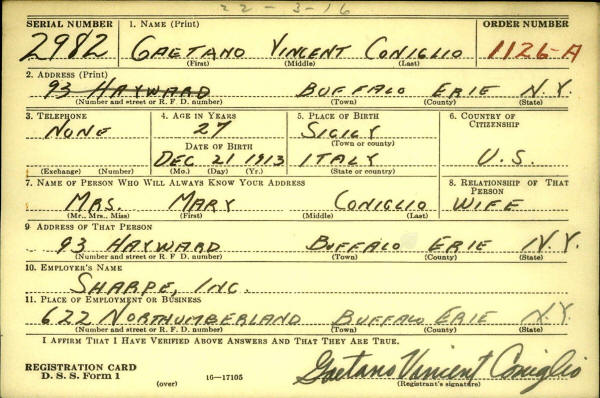 22-3-16
SERIAL NUMBER 1. NAME (Print) ORDER NUMBER
2982 GAETANO VINCENT CONIGLIO 1126-A
(First) (Middle) (Last)
2. ADDRESS (Print)
93 HAYWARD BUFFALO ERIE N.Y.
(Number and street or R. F. D. number) (Town) (County) (State)
3. TELEPHONE 4. AGE IN YEARS 5. PLACE OF BIRTH 6. COUNTRY OF CITIZENSHIP
NONE 27 SICILY
DATE OF BIRTH (Town or county)
DEC 21 1913 ITALY U.S.
(Exchange) (Number) (Mo.) (Day) (Yr.) (State or country)
7. NAME OF PERSON WHO WILL ALWAYS KNOW YOUR ADDRESS 8. RELATIONSHIP OF THAT PERSON
MRS. MARY CONIGLIO WIFE
(Mr., Mrs., Miss) (First) (Middle) (Last)
9 ADDRESS OF THAT PERSON
93 HAYWARD BUFFALO ERIE N.Y.
(Number and street or R. F. D. number) (Town) (County) (State)
10. EMPLOYER'S NAME
SHARPE, INC.
11. PLACE OF EMPLOYMENT OR BUSINESS
622 NORTHUMBERLAND BUFFALO ERIE N.Y.
(Number and street or R. F. D. number) (Town) (County) (State)
I AFFIRM THAT I HAVE VERIFIED ABOVE ANSWERS AND THAT THEY ARE TRUE.
REGISTRATION CARD
D. S. S. Form 1 (over) 16-17105 Gaetano Vincent Coniglio
(Registrant's signature)